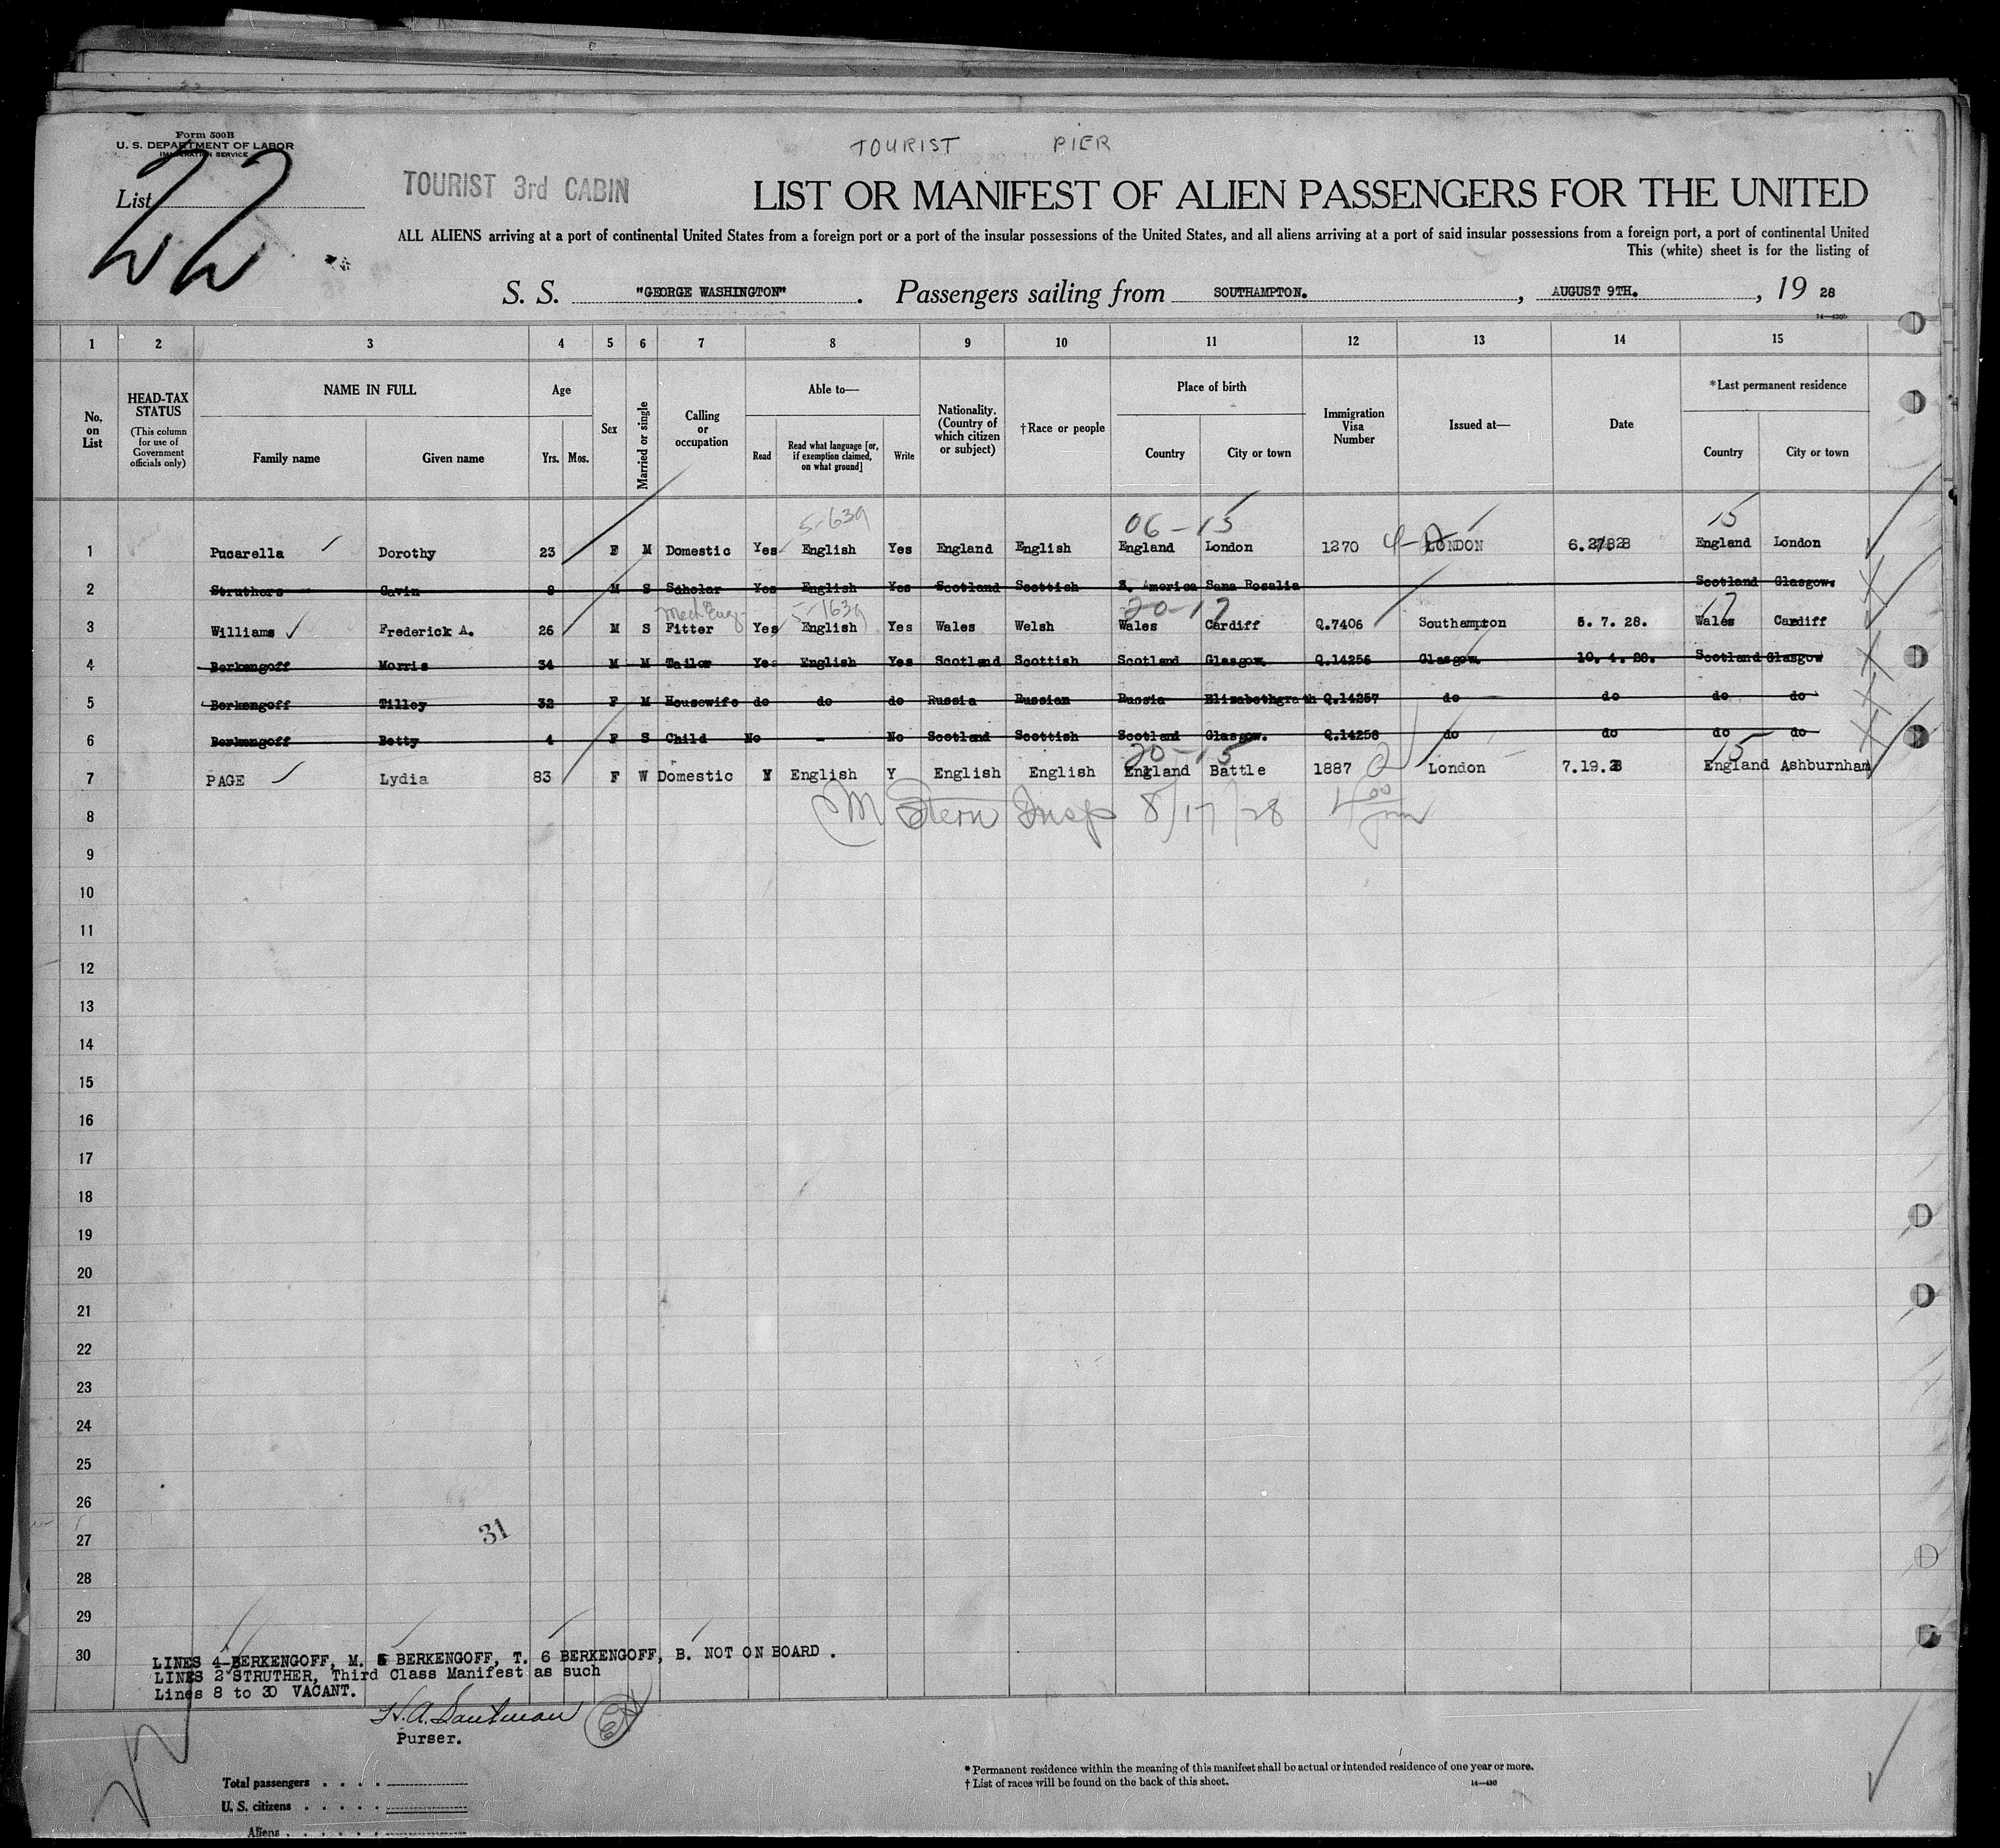 TOURIST PIER
Form 500B
U. S. DEPARTMENT OF LABOR
IMMIGRATION SERVICE
List 22
TOURIST 3rd CABIN
LIST OR MANIFEST OF ALIEN PASSENGERS FOR THE UNITED
ALL ALIENS arriving at a port of continental United States from a foreign port or a port of the insular possessions of the United States, and all aliens arriving at a port of said insular possessions from a foreign port, a port of continental United
This (white) sheet is for the listing of
S. S. "GEORGE WASHINGTON". Passengers sailing from SOUTHAMPTON., AUGUST 9TH., 19 28
14—430b
1 2 3 4 5 6 7 8 9 10 11 12 13 14 15
No. on List
HEAD-TAX STATUS (This column for use of Government officials only)
NAME IN FULL Family name Given name
Age Yrs. Mos.
Sex
Married or single
Calling or occupation
Able to— Read Read what language [or, if exemption claimed, on what ground] Write
Nationality. (Country of which citizen or subject)
†Race or people
Place of birth Country City or town
Immigration Visa Number
Issued at—
Date
*Last permanent residence Country City or town
5-639 06-15 15
1 Pucarella Dorothy 23 F M Domestic Yes English Yes England English England London 1270 LONDON 6.27.28 England London
2 Struthers Gavin 8 M S Scholar Yes English Yes Scotland Scottish S. America Sana Rosalia Scotland Glasgow.
Mech Eng 5-1639 20-17 17
3 Williams Frederick A. 26 M S Fitter Yes English Yes Wales Welsh Wales Cardiff Q.7406 Southampton 5. 7. 28. Wales Cardiff
4 Berkengoff Morris 34 M M Tailor Yes English Yes Scotland Scottish Scotland Glasgow. Q.14256 Glasgow. 10. 4. 28. Scotland Glasgow
5 Berkengoff Tilley 32 F M Housewife do do do Russia Russian Russia Elizabethgrath Q.14257 do do do do
6 Berkengoff Betty 4 F S Child No - No Scotland Scottish Scotland Glasgow. Q.14258 do do do do
20-15 15
7 PAGE Lydia 83 F W Domestic Y English Y English English England Battle 1887 London 7.19.28 England Ashburnham
8 M Stern Insp 8/17/28
9
10
11
12
13
14
15
16
17
18
19
20
21
22
23
24
25
26
27
31
28
29
30
LINES 4-BERKENGOFF, M. 5 BERKENGOFF, T. 6 BERKENGOFF, B. NOT ON BOARD .
LINES 2 STRUTHER, Third Class Manifest as such
Lines 8 to 30 VACANT.
Purser.
Total passengers
U. S. citizens
Aliens
* Permanent residence within the meaning of this manifest shall be actual or intended residence of one year or more.
† List of races will be found on the back of this sheet.
14—430